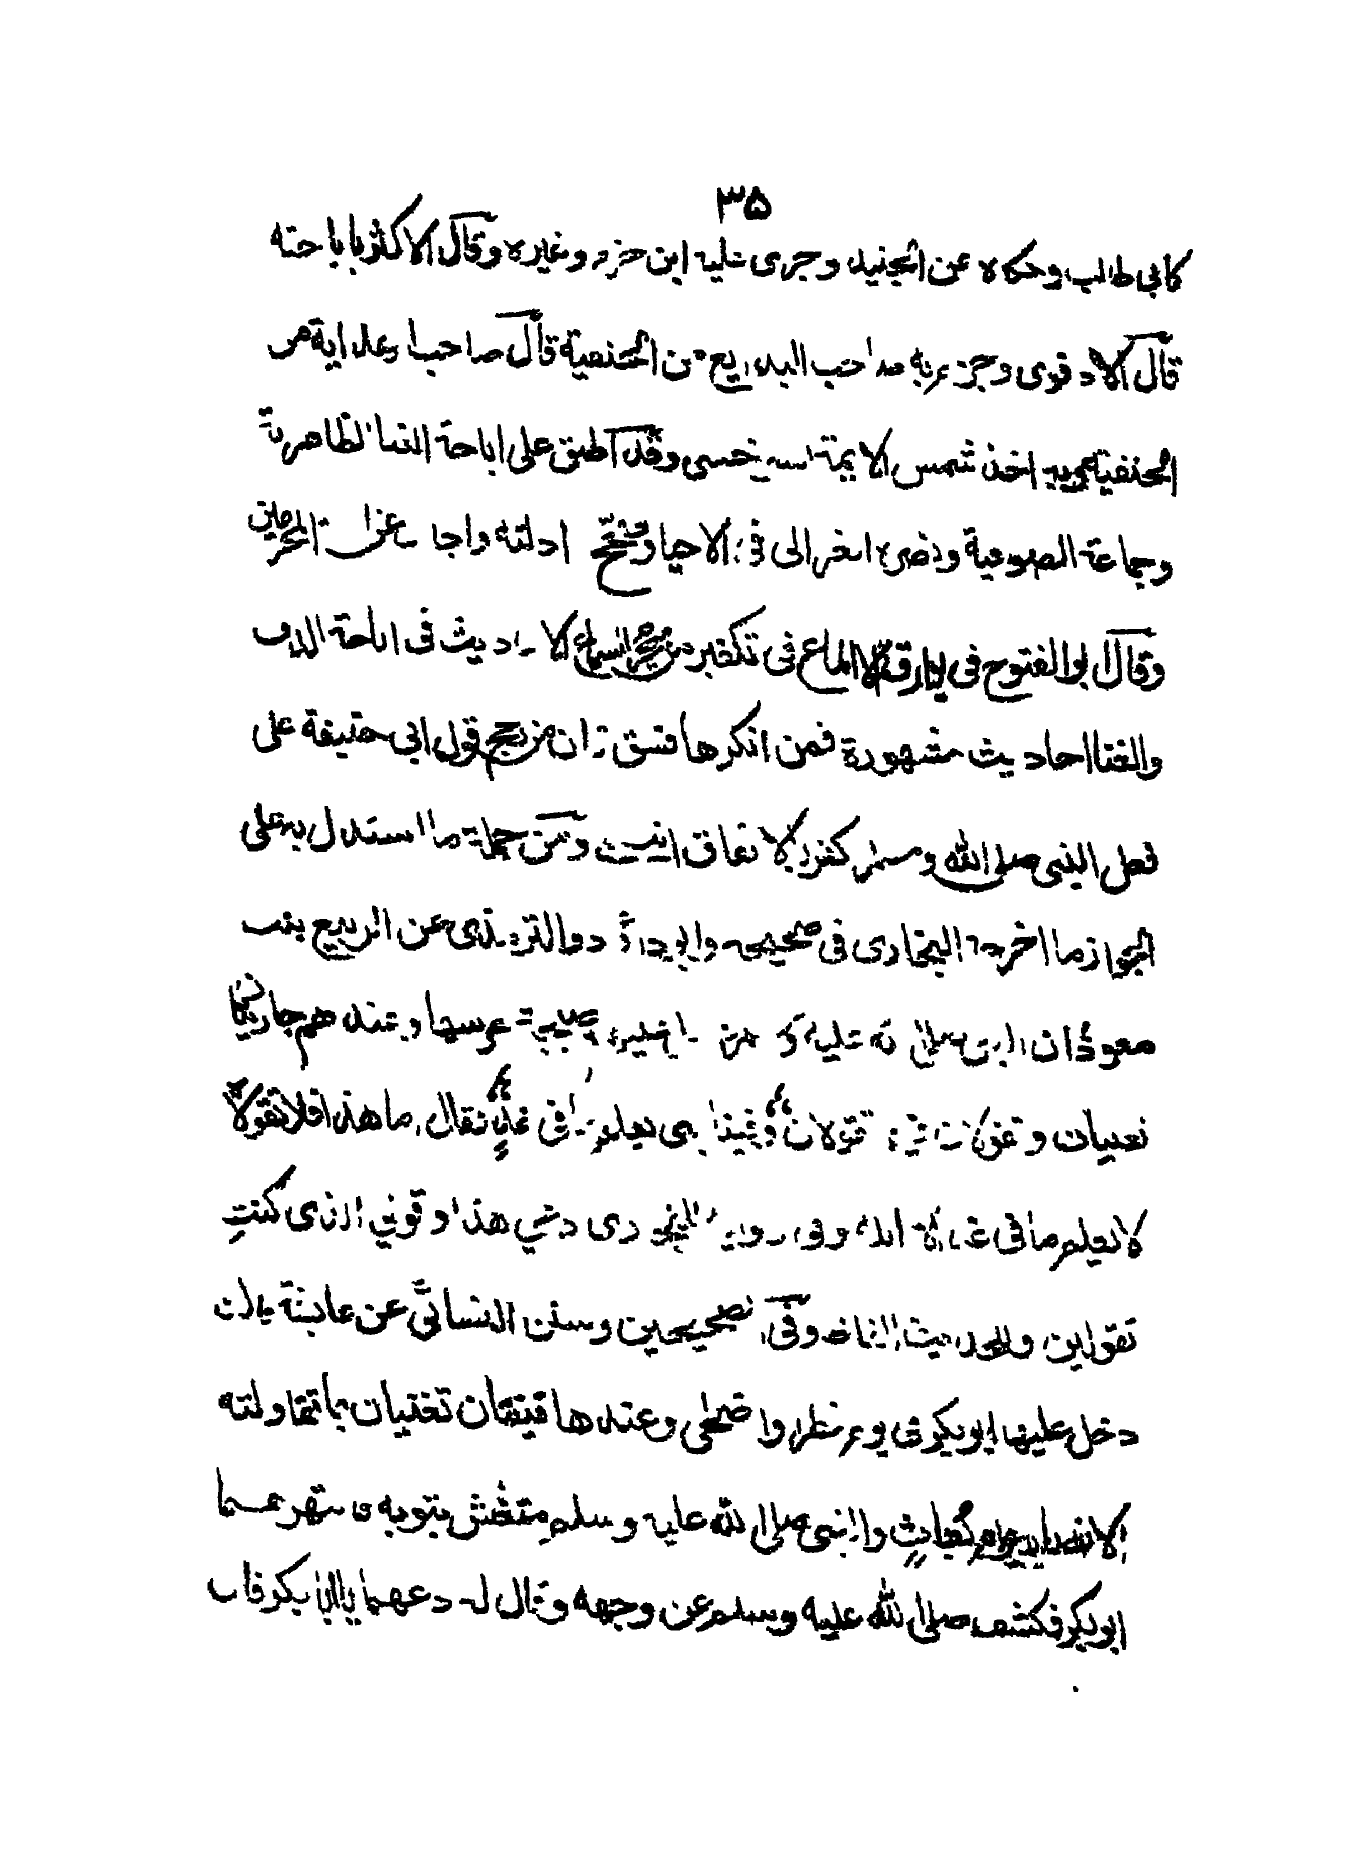 ٣٥
كابي طالب وحكاه عن الجنيد وجرى عليه ابن حزم وغيره وقال الاكثر باباحته
قال الادفوى وجزم به صاحب البديع من الحنفية قال صاحب الهداية من
الحنفية وبه اخذ شمس الايمة السرخسى وقد اطبق على اباحة الغنا الظاهرية
وجماعة الصوفية ونصره الغزالى في الاحيا وفتح ادلته واجاب عن امام الحرمين
وقال ابو الفتوح في بوارق الالماع في تكفير من يحرم السماع الاحاديث في اباحة الدف
والغنا احاديث مشهورة فمن انكرها فسق فان من رجح قول ابي حنيفة على
فعل النبى صلى الله وسلم كفر بالاتفاق انتهى ومن جملة ما استدل به على
الجواز ما اخرجه البخارى في صحيحه وابو داود والترمذى عن الربيع بنت
معوذ ان النبى صلى الله عليه صبيحة عرسها وعندهم جاريتان
تغنيان وتقولان فيما تقولان وفينا نبى يعلم ما في غد فقال ما هذا فلا تقولا
لا يعلم ما في غد الا الله وفي رواية البخارى دعي هذا وقولي الذى كنت
تقولين وللحديث الفاظ وفي الصحيحين وسنن النسائي عن عايشة قالت
دخل عليها ابو بكر في يوم فطر او اضحى وعندها قينتان تغنيان بما تقاولته
الانصار يوم بعاث والنبى صلى الله عليه وسلم متغش بثوبه فانتهرهما
ابو بكر فكشف صلى الله عليه وسلم عن وجهه وقال له دعهما يا ابا بكر فان